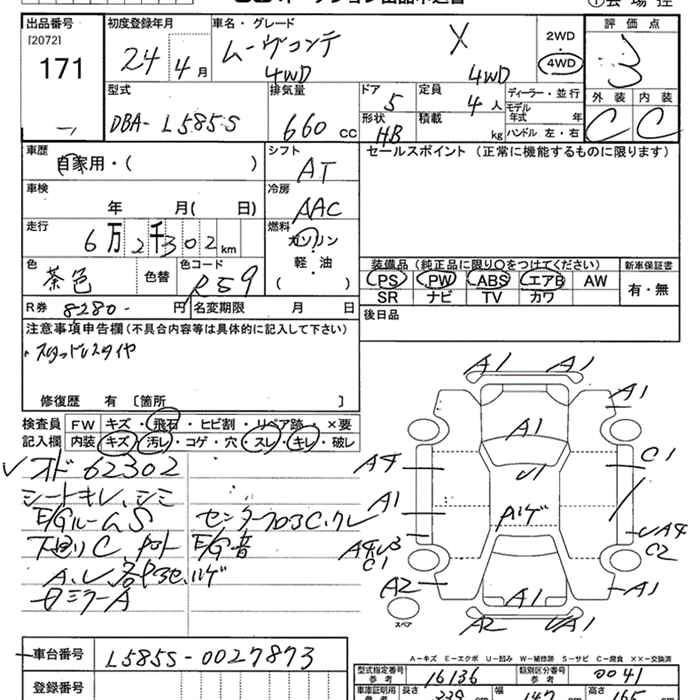 出品番号 初度登録年月 車名・グレード 評価点
[2072] 2WD
171 24年 4月 ムーヴコンテ X 4WD 3
4WD 4WD
型式 排気量 ドア 定員 ディーラー・並行 外装 内装
DBA-L585S 660cc 5 4人 モデル年式 年 C C
形状 積載 ハンドル 左・右
HB kg
車歴 シフト セールスポイント (正常に機能するものに限ります)
自家用・( ) AT
車検 冷房
年 月( 日) AAC
走行 燃料
6万2千302km ガソリン・
軽・油
( )
色 色替 色コード 装備品 (純正品に限り○をつけてください) 新車保証書
茶色 R59 PS PW ABS エアB AW 有・無
SR ナビ TV カワ
R券 8280- 円 名変期限 月 日 後日品
注意事項申告欄 (不具合内容等は具体的に記入して下さい)
・スタッドレスタイヤ
修復歴 有 〔箇所 〕
検査員 FW キズ・飛石・ヒビ割・リペア跡・×要
記入欄 内装 キズ・汚レ・コゲ・穴・スレ・キレ・破レ
オド62302
シートキレ、シミ
E/GルームS センターフロアC、クレ
下廻りC E/G音
ミラーA
A1 A1
A1
A1
C1
A4 U1
A1 ハゲ
C1 C2
A2 A1 A1
スペア A2
A-キズ E-エクボ U-凹み W-補修跡 S-サビ C-腐食 ××-交換済
車台番号 L585S-0027873
登録番号
型式指定番号 参考 16136 類別区分番号 参考 0041
長さ 幅 147 高さ